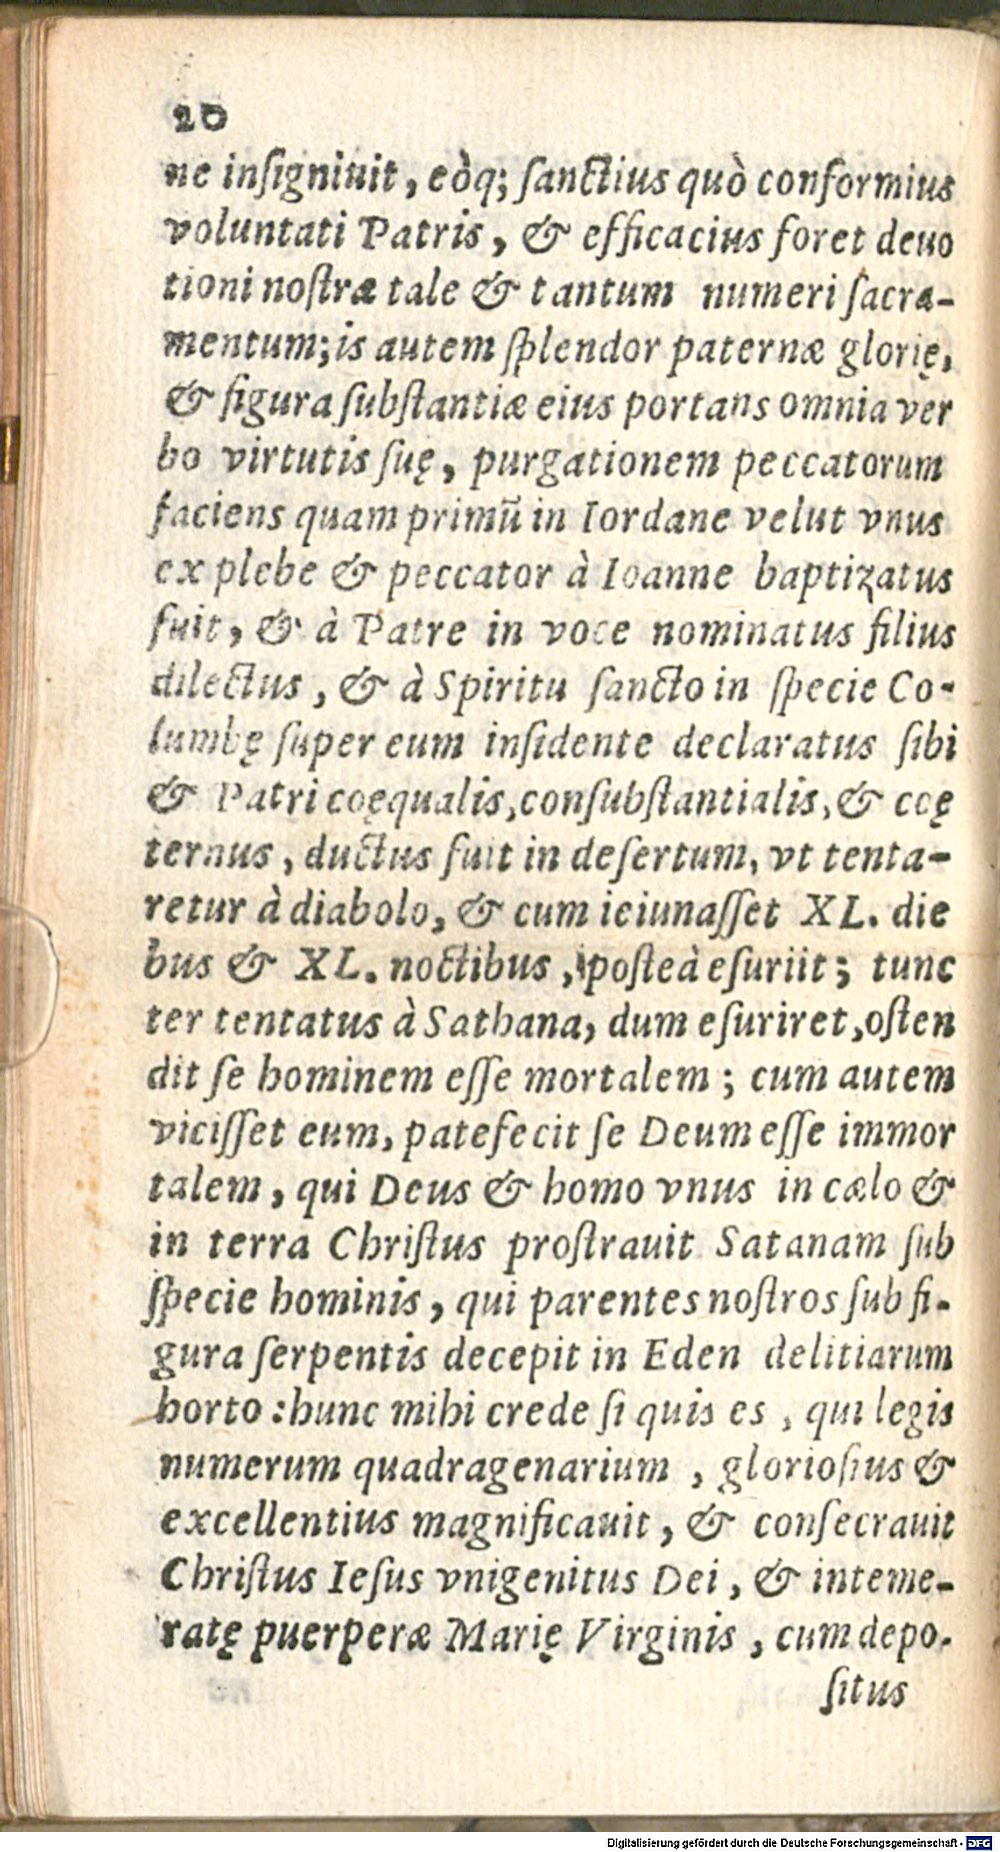 20
ne inſigniuit, eòq; ſanctius quò conformius
voluntati Patris, & efficacius foret deuo
tioni noſtræ tale & tantum numeri ſacra-
mentum; is autem ſplendor paternæ glorię,
& figura ſubſtantiæ eius portans omnia ver
bo virtutis ſuę, purgationem peccatorum
faciens quam primū in Iordane velut vnus
ex plebe & peccator à Ioanne baptizatus
fuit, & à Patre in voce nominatus filius
dilectus, & à Spiritu ſancto in ſpecie Co-
lumbę ſuper eum inſidente declaratus ſibi
& Patri coęqualis, conſubſtantialis, & coę
ternus, ductus fuit in deſertum, vt tenta-
retur à diabolo, & cum ieiunaſſet XL. die
bus & XL. noctibus, poſteà eſuriit; tunc
ter tentatus à Sathana, dum eſuriret, oſten
dit ſe hominem eſſe mortalem; cum autem
viciſſet eum, patefecit ſe Deum eſſe immor
talem, qui Deus & homo vnus in cælo &
in terra Chriſtus proſtrauit Satanam ſub
ſpecie hominis, qui parentes noſtros ſub fi-
gura ſerpentis decepit in Eden delitiarum
horto: hunc mihi crede ſi quis es, qui legis
numerum quadragenarium, glorioſius &
excellentius magnificauit, & conſecrauit
Chriſtus Ieſus vnigenitus Dei, & inteme-
ratę puerperæ Marię Virginis, cum depo-
ſitus
Digitalisierung gefördert durch die Deutsche Forschungsgemeinschaft - DFG